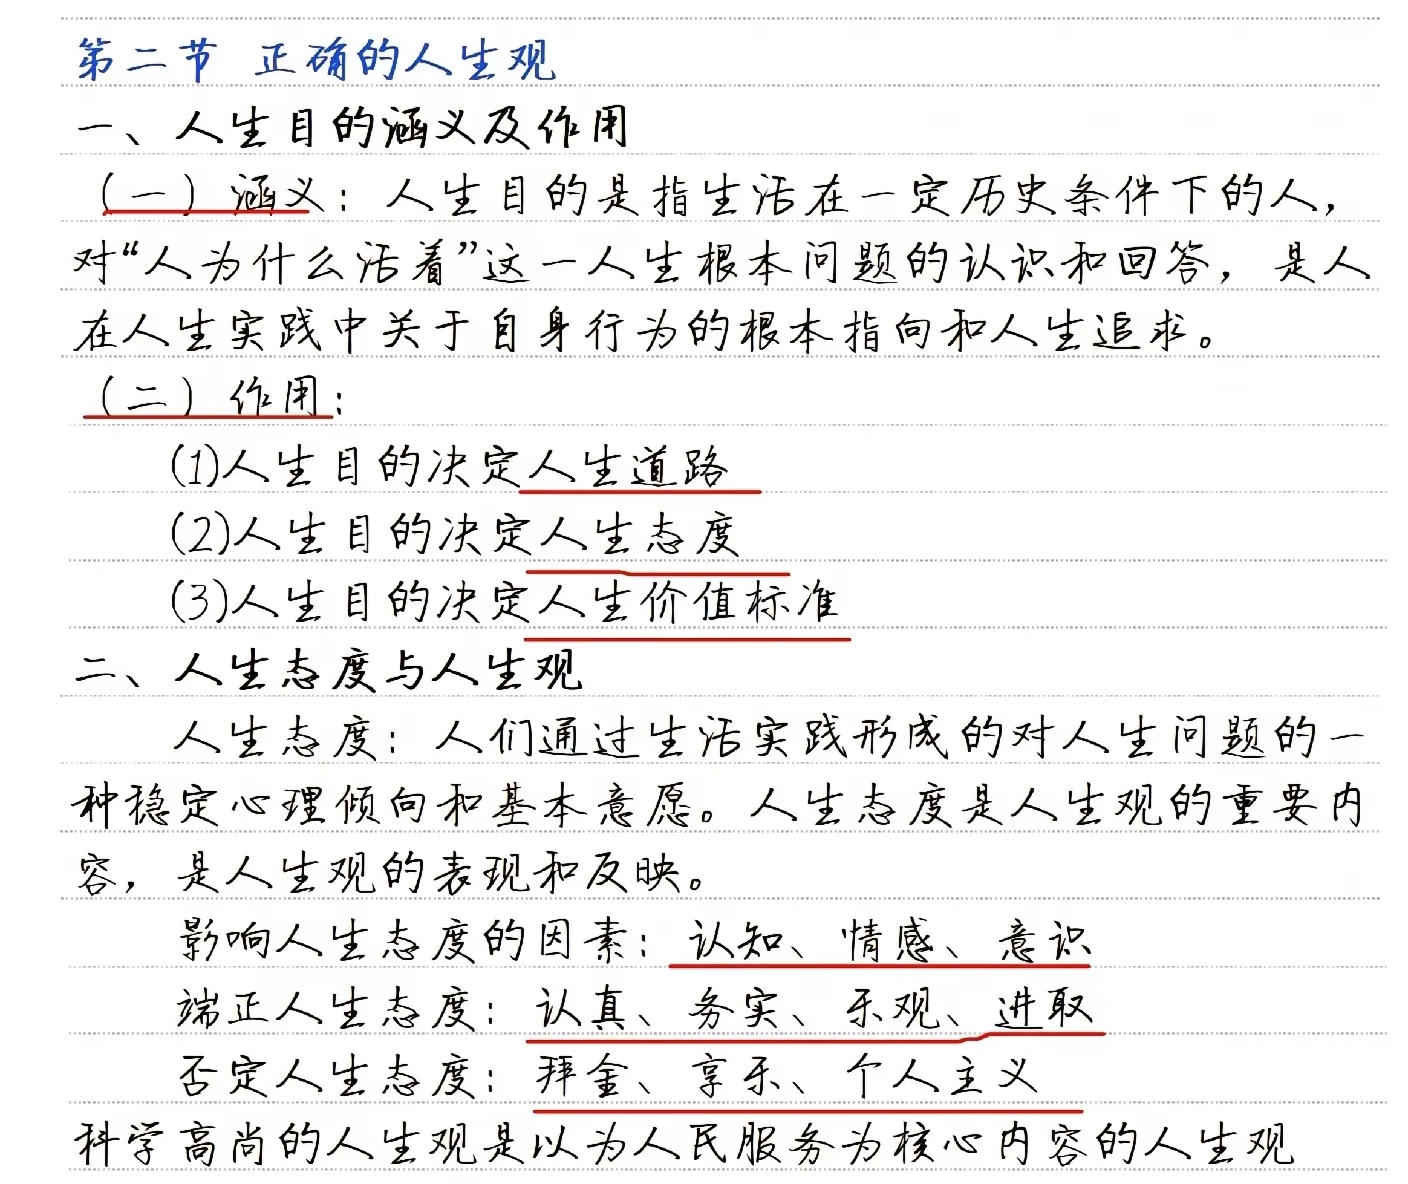 第二节 正确的人生观
一、人生目的涵义及作用
（一）涵义：人生目的是指生活在一定历史条件下的人，
对“人为什么活着”这一人生根本问题的认识和回答，是人
在人生实践中关于自身行为的根本指向和人生追求。
（二）作用：
(1)人生目的决定人生道路
(2)人生目的决定人生态度
(3)人生目的决定人生价值标准
二、人生态度与人生观
人生态度：人们通过生活实践形成的对人生问题的一
种稳定心理倾向和基本意愿。人生态度是人生观的重要内
容，是人生观的表现和反映。
影响人生态度的因素：认知、情感、意识
端正人生态度：认真、务实、乐观、进取
否定人生态度：拜金、享乐、个人主义
科学高尚的人生观是以为人民服务为核心内容的人生观